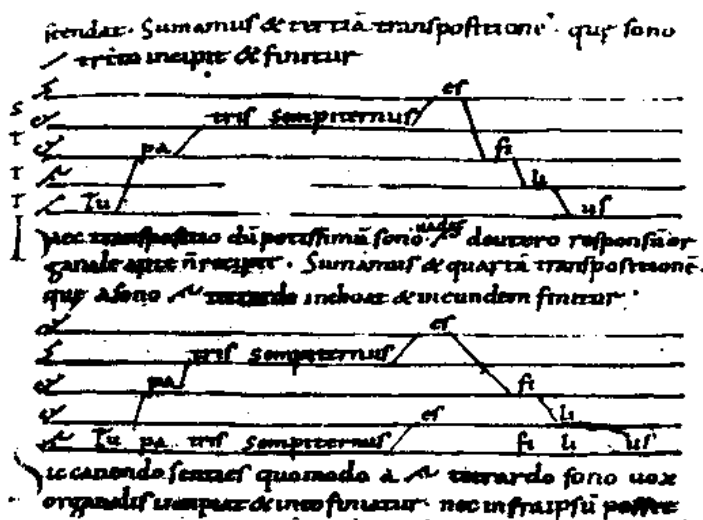 scendat. Sumamus & tertiã transpositionẽ. quę sono
trito incipit & finitur
es
S
tris sempiternus
T
pa fi
T
li
T
Tu us
aec transpositio dũ potissimũ sono deutero responsũ or
ganale apte ñ recipit. Sumamus & quartã transpositionẽ.
que a sono tetrardo inchoat & in eundem finitur.
es
tris sempiternus
pa fi
es li
Tu pa tris sempiternus fi li us
ic canendo senties quomodo a tetrardo sono uox
organalis incipiat & in eo finiatur. nec infra ipsũ